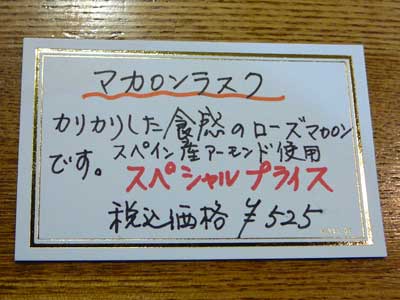 マカロンラスク
カリカリした食感のローズマカロン
です。スペイン産アーモンド使用
スペシャルプライス
税込価格 ¥525